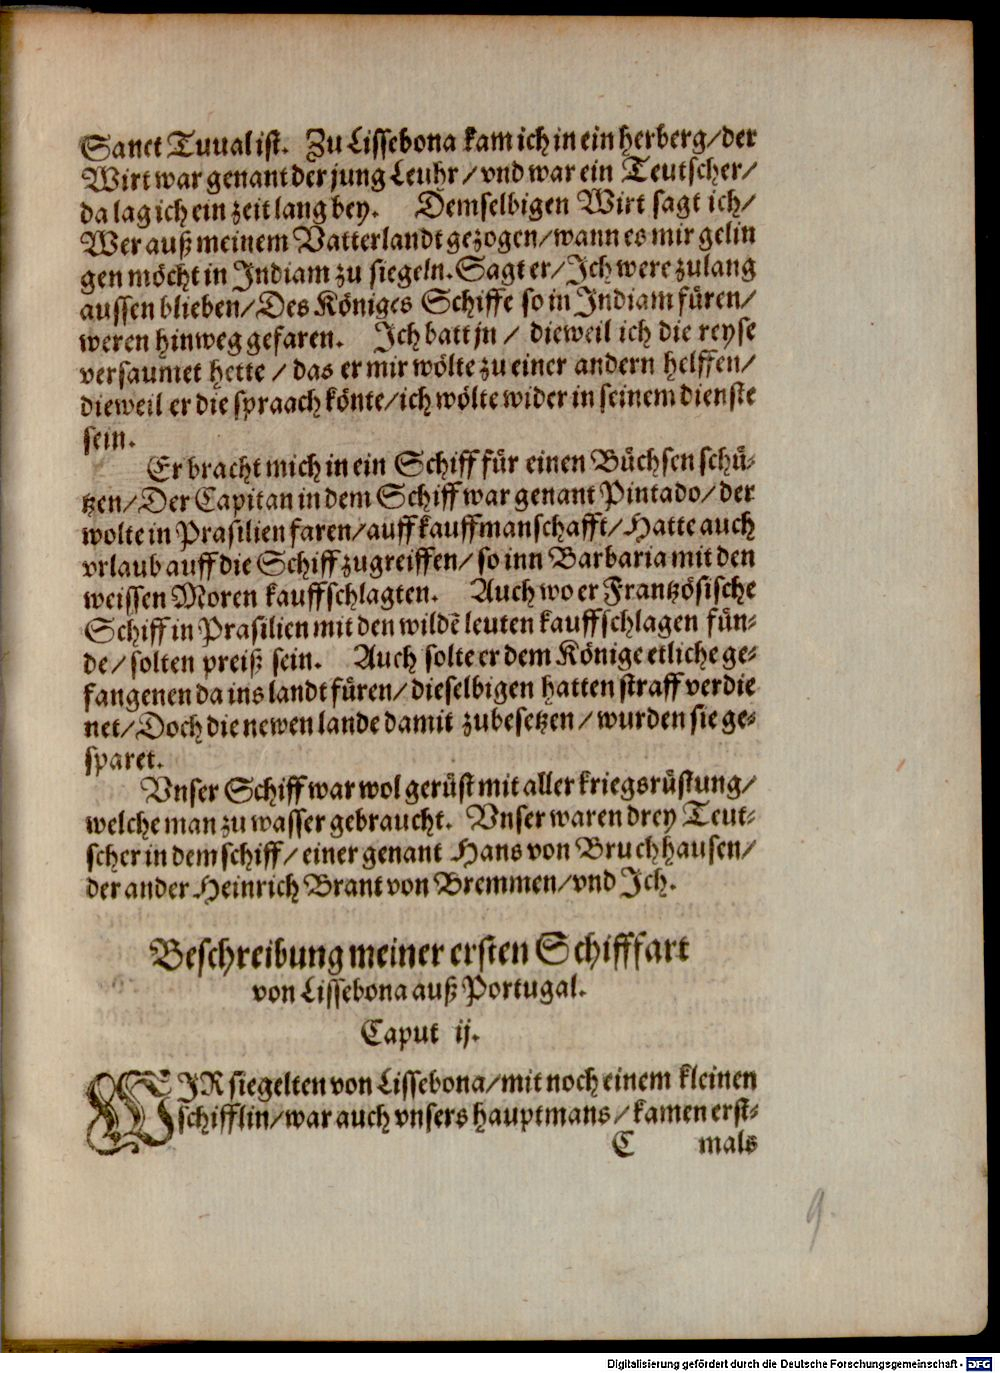 Sanct Tuual ist. Zu Lissebona kam ich in ein herberg/der
Wirt war genant der jung Leuhr/vnd war ein Teutscher/
da lag ich ein zeit lang bey. Demselbigen Wirt sagt ich/
Wer auß meinem Vatterlandt gezogen/wann es mir gelin
gen möcht in Indiam zu siegeln. Sagt er/Ich were zulang
aussen blieben/Des Königes Schiffe so in Indiam füren/
weren hinweg gefaren. Ich batt jn/ dieweil ich die reyse
versaumet hette/das er mir wölte zu einer andern helffen/
dieweil er die spraach könte/ich wölte wider in seinem dienste
sein.
Er bracht mich in ein Schiff für einen Büchsenschü-
tzen/Der Capitan in dem Schiff war genant Pintado/der
wolte in Prasilien faren/auff kauffmanschafft/Hatte auch
vrlaub auff die Schiff zugreiffen/so inn Barbaria mit den
weissen Moren kauffschlagten. Auch wo er Frantzösische
Schiff in Prasilien mit den wildē leuten kauffschlagen fün-
de/solten preiß sein. Auch solte er dem Könige etliche ge-
fangenen da ins landt füren/dieselbigen hatten straff verdie
net/Doch die newen lande damit zubesetzen/wurden sie ge-
sparet.
Vnser Schiff war wol gerüst mit aller kriegsrüstung/
welche man zu wasser gebraucht. Vnser waren drey Teut-
scher in dem schiff/einer genant Hans von Bruchhausen/
der ander Heinrich Brant von Bremmen/vnd Ich.
Beschreibung meiner ersten Schifffart
von Lissebona auß Portugal.
Caput ij.
WIR siegelten von Lissebona/mit noch einem kleinen
schifflin/war auch vnsers hauptmans/kamen erst-
C mals
9
Digitalisierung gefördert durch die Deutsche Forschungsgemeinschaft - DFG